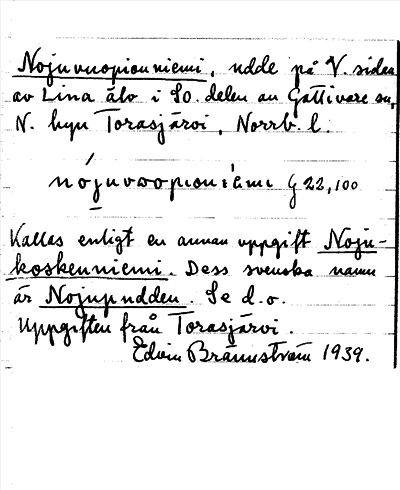 Nojuvuopionniemi, udde på V. sidan
av Lina älv i SO. delen av Gällivare sn,
N. byn Torasjärvi, Norrb. l.
nójuvωopioniémi G 22,100
Kallas enligt en annan uppgift Noju-
koskenniemi. Dess svenska namn
är Nojupudden. Se d. o.
Uppgiften från Torasjärvi.
Edvin Brännström 1939.